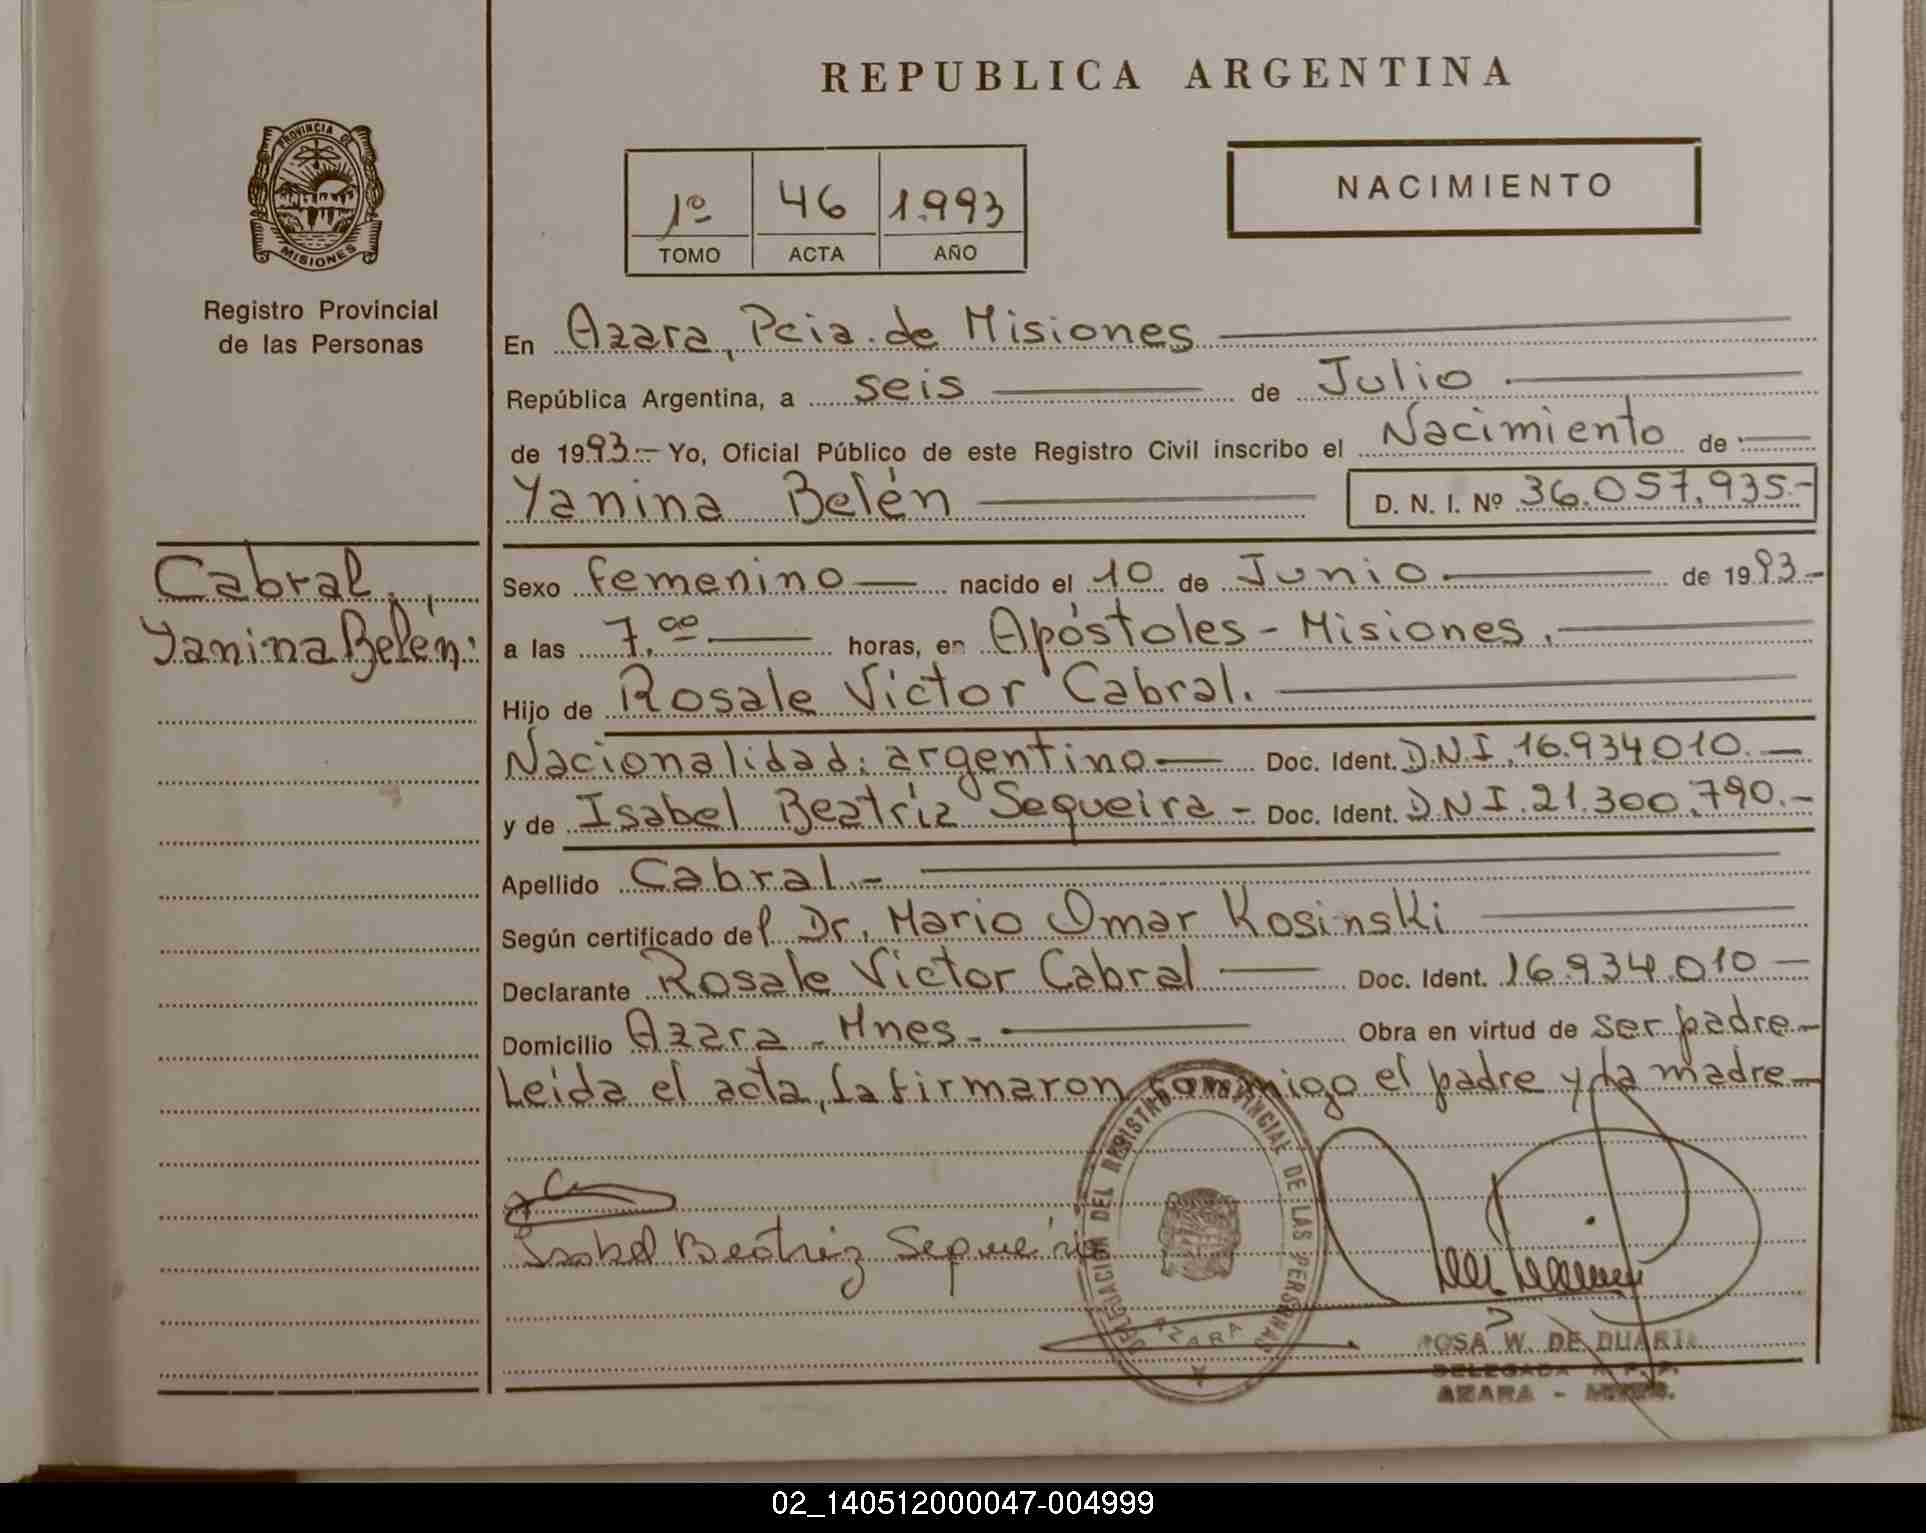 REPUBLICA ARGENTINA
PROVINCIA DE
MISIONES
Registro Provincial
de las Personas
1º 46 1.993
TOMO ACTA AÑO
NACIMIENTO
En Azara, Pcia. de Misiones
República Argentina, a seis de Julio
de 1993.- Yo, Oficial Público de este Registro Civil inscribo el Nacimiento de
Yanina Belén D. N. I. Nº 36.057.935.-
Cabral,
Yanina Belén:
Sexo femenino nacido el 10 de Junio de 1993.-
a las 7.ºº horas, en Apóstoles - Misiones.
Hijo de Rosale Victor Cabral.
Nacionalidad: argentino Doc. Ident. D.N.I. 16.934.010.
y de Isabel Beatríz Sequeira - Doc. Ident. D.N.I. 21.300.790.-
Apellido Cabral.-
Según certificado del Dr. Mario Omar Kosinski
Declarante Rosale Victor Cabral Doc. Ident. 16.934.010
Domicilio Azara - Mnes. Obra en virtud de ser padre
Leída el acta, la firmaron conmigo el padre y la madre
Isabel Beatriz Sequeira
DELEGACION DEL REGISTRO PROVINCIAL DE LAS PERSONAS
AZARA
ROSA W. DE DUARTE
DELEGADA R. P. P.
AZARA - MNES.
02_140512000047-004999